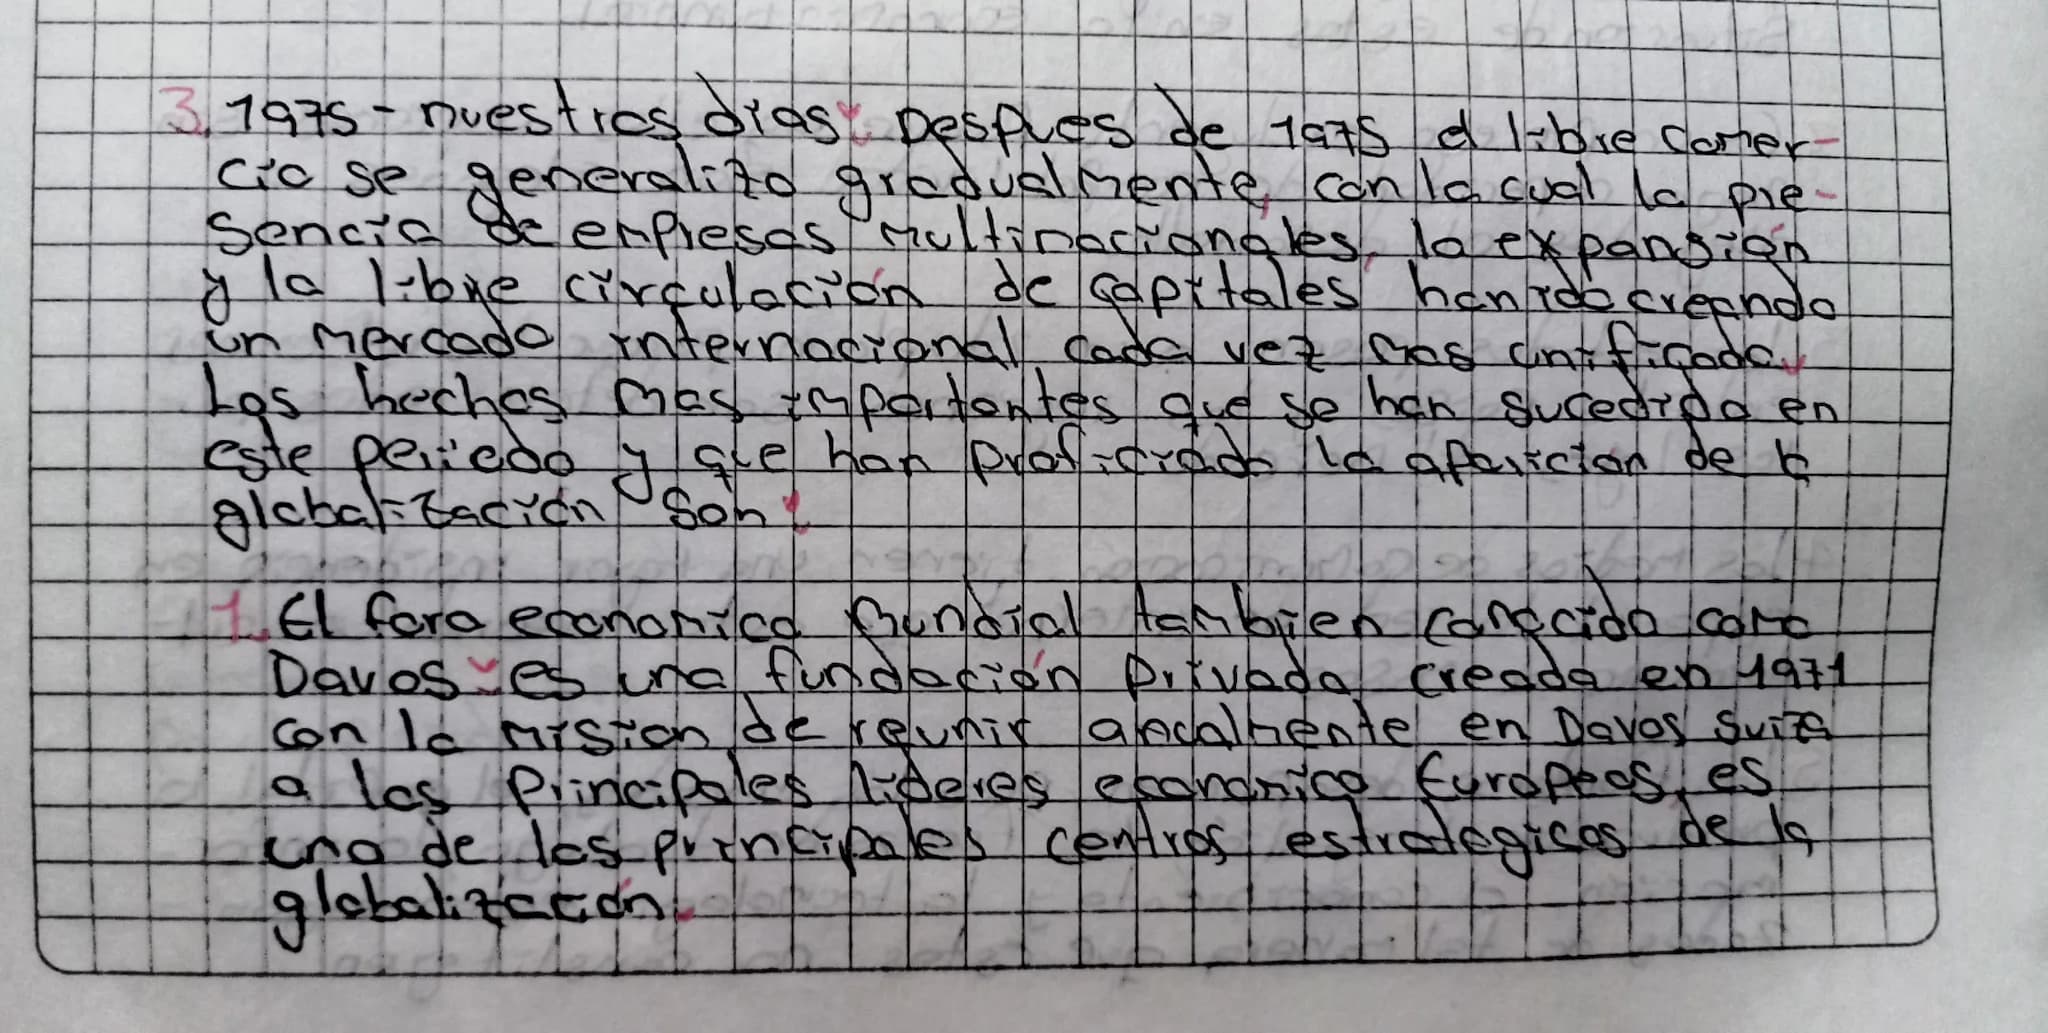 3. 1975 - nuestros dias: Despues de 1975 el libre comer-
cio se generalizo gradualmente, con la cual la pre-
sencia de empresas multinacionales, la expansión
y la libre circulación de capitales han ido creando
un mercado internacional cada vez mas unificado,
Los hechos mas importantes que se han sucedido en
este periodo y que han proficiado la aparicion de la
globalización son:
1. El foro economico mundial tambien conocido como
Davos: es una fundación privada creada en 1971
con la mision de reunir anualmente en Davos Suiza
a los principales lideres economico Europeos, es
uno de los principales centros estrategicos de la
globalización.